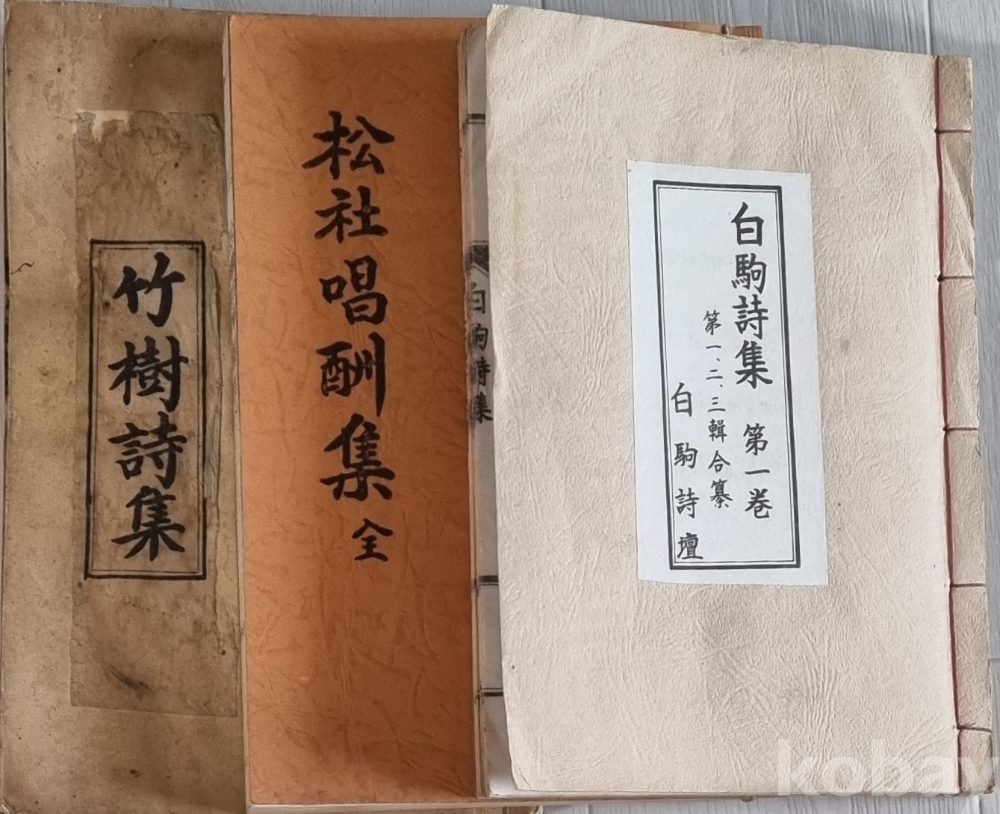 白駒詩集 第一卷
第一、二、三輯合纂
白駒詩壇
白駒詩集
松社唱酬集 全
竹樹詩集
kobay